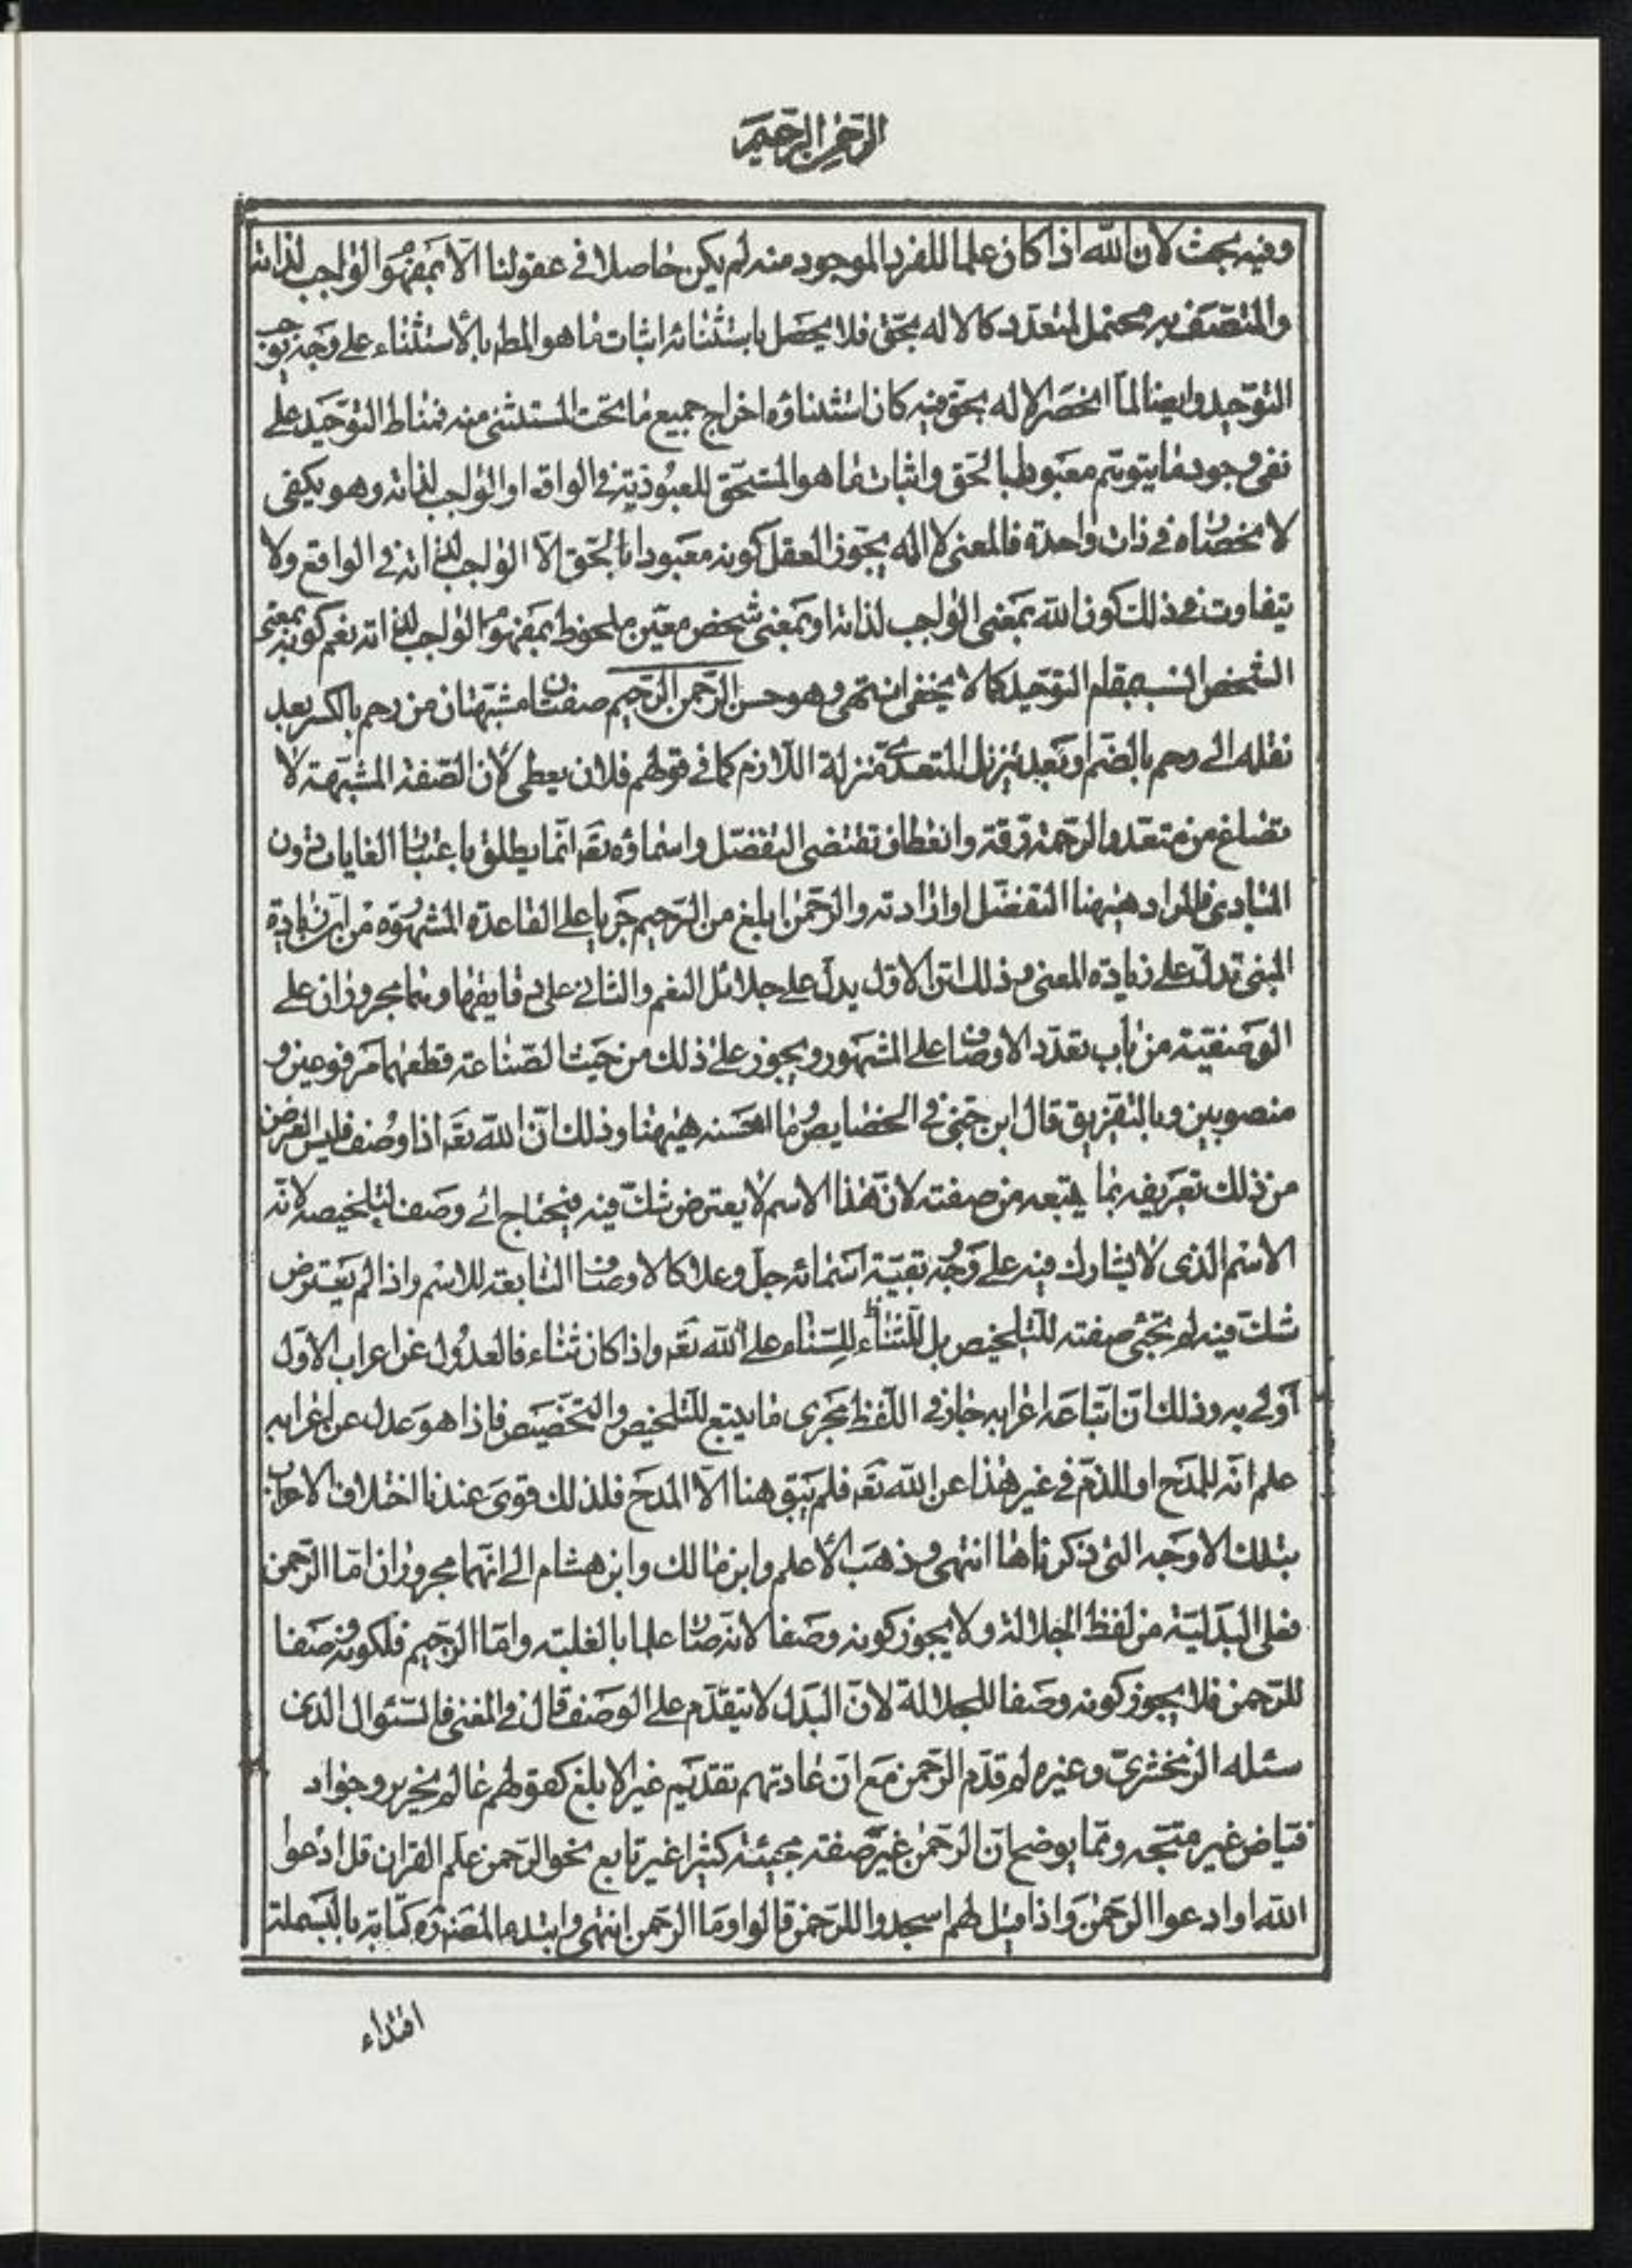 الرحمن الرحيم
وفيه بحث لان الله اذا كان علما للفرد الموجود منه لم يكن حاصلا في عقولنا الا بمفهوم الواجب لذاته
والمتصف به محتمل لتعدد كالاله بحق فلا يحصل باستثنائه اثبات ما هو المط بالاستثناء على وجه يوجب
التوحيد وايضا لما انحصر الاله بحق فيه كان استثناؤه اخراج جميع ما تحت المستثنى منه فمناط التوحيد على
نفي وجود ما يتوهم معبودا بالحق واثبات ما هو المستحق للعبودية في الواقع او الواجب لذاته وهو يكفى
لانحصاره في ذات واحدة فالمعنى لا اله يجوز العقل كونه معبودا بالحق الا الواجب لذاته في الواقع ولا
يتفاوت في ذلك كون الله بمعنى الواجب لذاته او بمعنى شخص معين ملحوظ بمفهوم الواجب لذاته نعم كونه بمعنى
الشخص انسب بمقام التوحيد كما لا يخفى انتهى وهو حسن الرحمن الرحيم صفتان مشبهتان من رحم بالكسر بعد
نقله الى رحم بالضم او بعد تنزيل المتعدي منزلة اللازم كما في قولهم فلان يعطى لان الصفة المشبهة لا
تصاغ من متعد والرحمة رقة وانعطاف تقتضى التفضل واسماؤه تع انما يطلق باعتبار الغايات دون
المبادى فالمراد هيهنا التفضل او ارادته والرحمن ابلغ من الرحيم جريا على القاعدة المشهورة من ان زيادة
المبنى تدل على زيادة المعنى وذلك ان الاول يدل على جلائل النعم والثاني على دقايقها وهما مجروران على
الوصفية من باب تعدد الاوصاف على المشهور ويجوز على ذلك من حيث الصناعة قطعهما مرفوعين و
منصوبين وبالتفريق قال ابن جني في الخصايص وما احسنه هيهنا وذلك ان الله تع اذا وصف فليس الغرض
من ذلك تعريفه بما يتبعه من صفته لان هذا الاسم لا يعترض شك فيه فيحتاج الى وصف لتلخيصه لانه
الاسم الذى لا يشارك فيه على وجه بقية اسمائه جل وعلا كالاوصاف التابعة للاسم واذا لم يعترض
شك فيه لم تجئ صفته للتلخيص بل للثناء للثناء على الله تع واذا كان ثناء فالعدول عن اعراب الاول
اولى به وذلك ان اتباعه اعرابه جاز في اللفظ مجرى ما يتبع للتلخيص والتخصيص فاذا هو عدل عن اعرابه
علم انه للمدح او للذم في غير هذا عن الله تع فلم يبق هنا الا المدح فلذلك قوى عندنا اختلاف الاعراب
بتلك الاوجه التى ذكرناها انتهى وذهب الاعلم وابن مالك وابن هشام الى انهما مجروران اما الرحمن
فعلى البدلية من لفظ الجلالة ولا يجوز كونه وصفا لانه صار علما بالغلبة واما الرحيم فلكونه وصفا
للرحمن فلا يجوز كونه وصفا للجلالة لان البدل لا يتقدم على الوصف قال في المغنى فالسئوال الذى
سئله الزمخشري وغيره لم قدم الرحمن مع ان عادتهم تقديم غير الابلغ كقولهم عالم نحرير وجواد
فياض غير متجه ومما يوضح ان الرحمن غير صفة مجيئه كثيرا غير تابع نحو الرحمن علم القران قل ادعوا
الله او ادعوا الرحمن واذا قيل لهم اسجدوا للرحمن قالوا وما الرحمن انتهى وابتدء المصنف ره كتابه بالبسملة
اقتداء